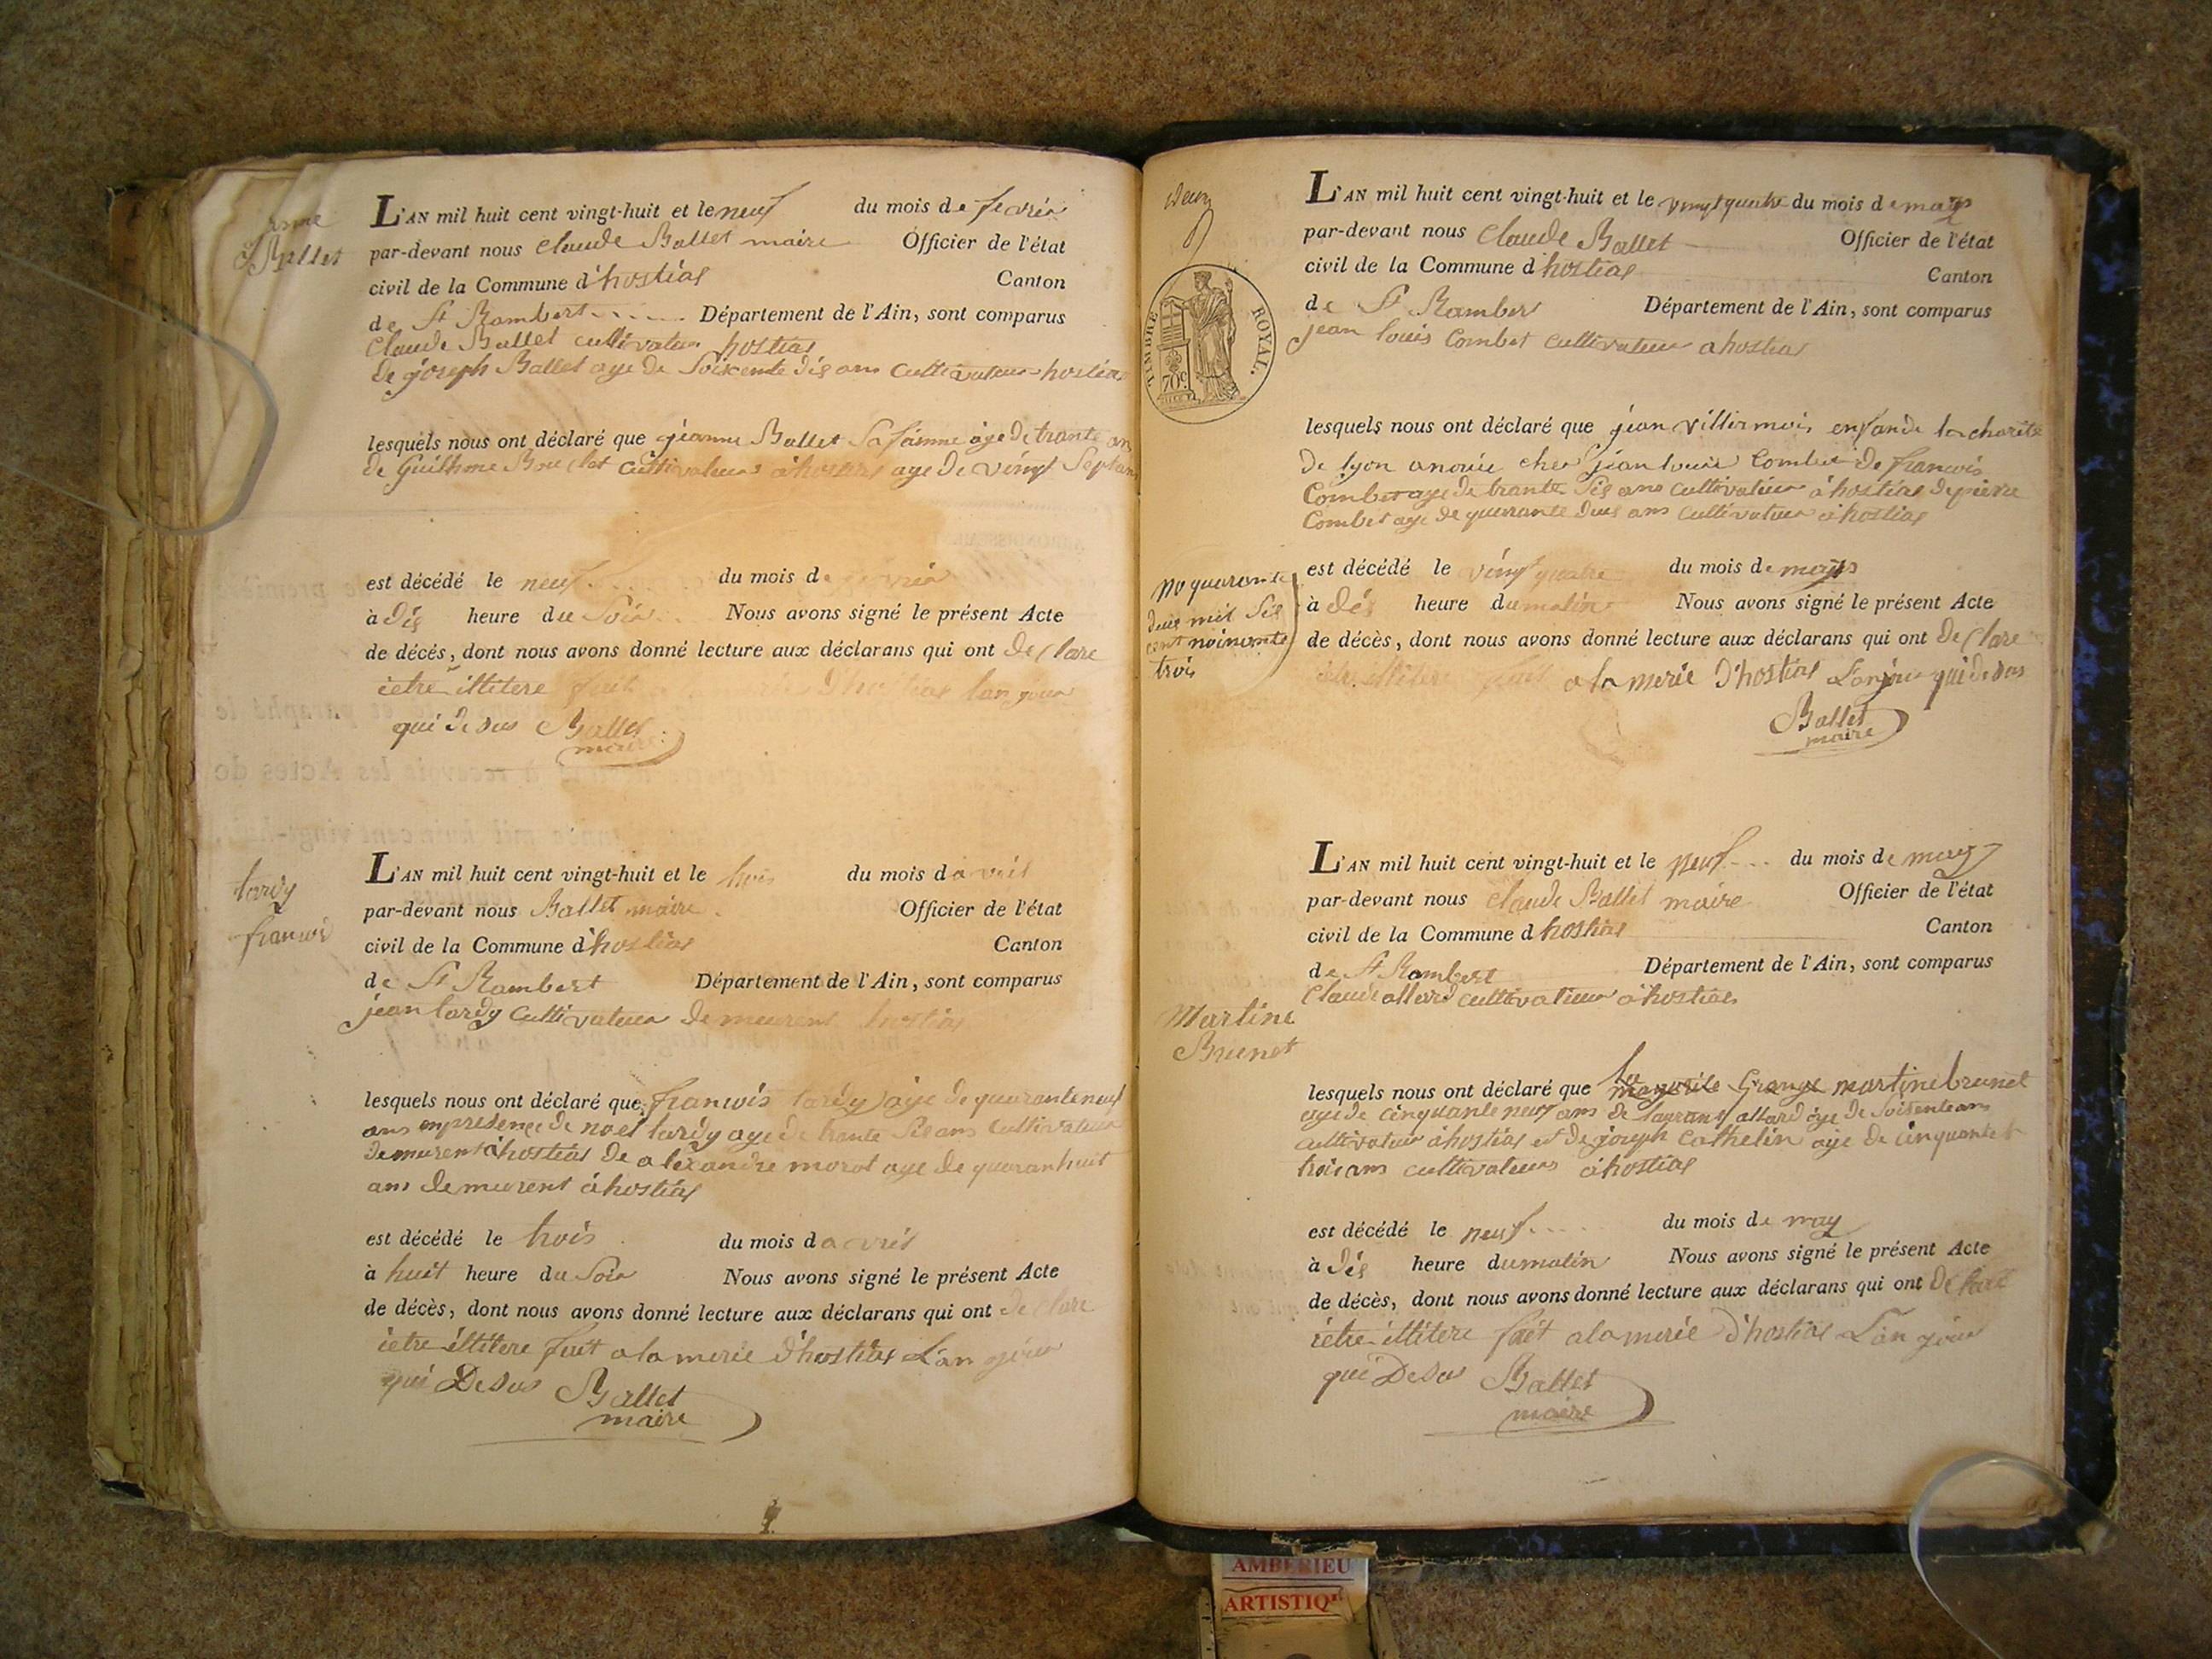 Ballet
L'AN mil huit cent vingt-huit et le neuf du mois de fevrier
par-devant nous Claude Ballet maire Officier de l'état
civil de la Commune d'hostias Canton
de St Rambert Département de l'Ain, sont comparus
Claude Ballet cultivateur hostias
de joseph Ballet age de Soixente dis ans Cultivateur hostias
lesquels nous ont déclaré que jeanne Ballet Sa famme age de trante ans
de cultivateur à hostias age de vingt Sept ans
est décédé le neuf du mois de
à dis heure du Soir Nous avons signé le présent Acte
de décés, dont nous avons donné lecture aux déclarans qui ont declare
ietre illitere fait d'hostias lan jour
qui desus Ballet
maire
tardy
francois
L'AN mil huit cent vingt-huit et le trois du mois d avril
par-devant nous Ballet maire Officier de l'état
civil de la Commune d'hostias Canton
de St Rambert Département de l'Ain, sont comparus
jean tardy Cultivateur demeurent hostias
lesquels nous ont déclaré que francois tardy age de quaranteneuf
ans enpresence de noel tardy age de trante Sis ans Cultivateur
demurent à hostias de alexandre morot age de quaranhuit
ans demeurent à hostias
est décédé le trois du mois d avril
à huit heure du Soir Nous avons signé le présent Acte
de décès, dont nous avons donné lecture aux déclarans qui ont declare
ietre illitere fait a la merie d'hostias L'an jour
qui Desus Ballet
maire
TIMBRE ROYAL.
70c.
L'AN mil huit cent vingt-huit et le vingtquatre du mois de mars
par-devant nous Claude Ballet Officier de l'état
civil de la Commune d hostias Canton
de St Rambert Département de l'Ain, sont comparus
jean louis Combet cultivateur a hostias
lesquels nous ont déclaré que jean villermois enfan de la charite
de lyon anouri cher jean louis Combet de francois
Combet age de trante Sis ans cultivateur à hostias de pierre
Combet age de quarante deus ans cultivateur à hostias
no quarante
deus mil Sis
cent noinante
trois
est décédé le vingt quatre du mois de mars
à dis heure du matin Nous avons signé le présent Acte
de décès, dont nous avons donné lecture aux déclarans qui ont declare
ietre illitere fait a la merie d'hostias L'an jour qui desus
Ballet
maire
L'AN mil huit cent vingt-huit et le neuf du mois de may
par-devant nous Claude Ballet maire Officier de l'état
civil de la Commune d hostias Canton
de St Rambert Département de l'Ain, sont comparus
Claude allard cultivateur à hostias
Martine
Brunet
lesquels nous ont déclaré que la Grange martine brunet
age de cinquante neuf ans de laurans allard age de Soisente ans
cultivateur à hostias et de joseph Cathelin age de cinquante
trois ans cultivateur à hostias
est décédé le neuf du mois de may
à dis heure du matin Nous avons signé le présent Acte
de décès, dont nous avons donné lecture aux déclarans qui ont declare
ietre illitere fait a la merie d'hostias L'an jour
qui Desus Ballet
maire
AMBERIEU
ARTISTIQ